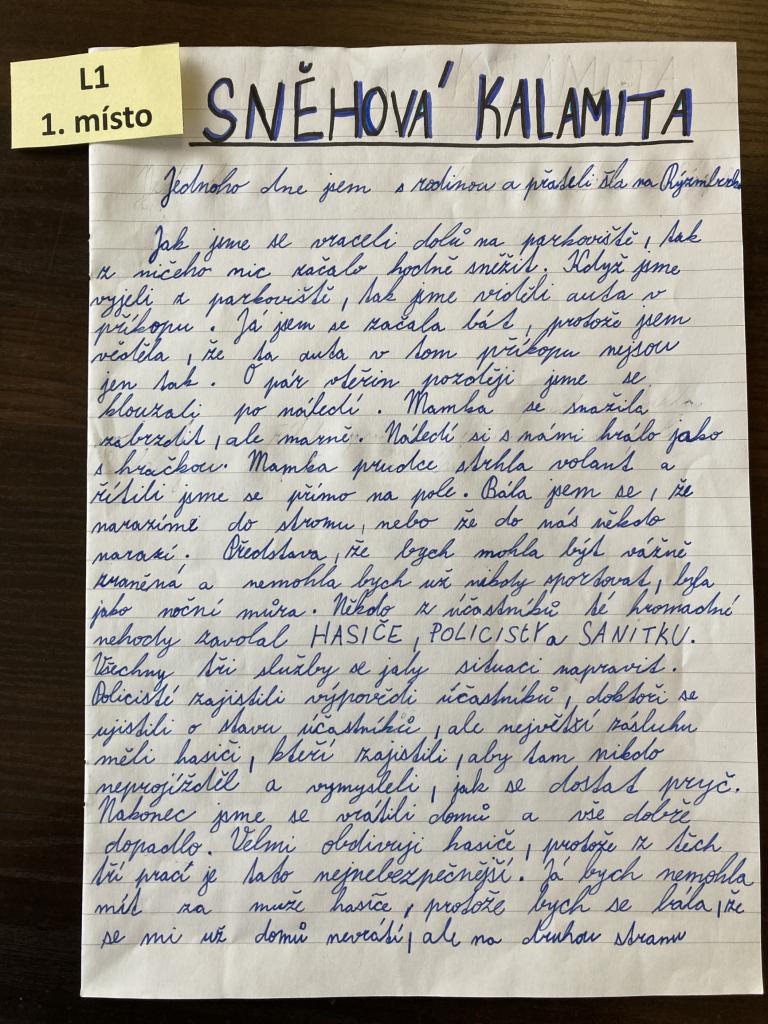 L1
1. místo
SNĚHOVÁ KALAMITA
Jednoho dne jsem s rodinou a přáteli šla na
Jak jsme se vraceli dolů na parkoviště, tak
z ničeho nic začalo hodně sněžit. Když jsme
vyjeli z parkoviště, tak jsme viděli auta v
příkopu. Já jsem se začala bát, protože jsem
věděla, že ta auta v tom příkopu nejsou
jen tak. O pár vteřin později jsme se
klouzali po náledí. Mamka se snažila
zabrzdit, ale marně. Náledí si s námi hrálo jako
s hračkou. Mamka prudce strhla volant a
řítili jsme se přímo na pole. Bála jsem se, že
narazíme do stromu, nebo že do nás někdo
narazí. Představa, že bych mohla být vážně
zraněná a nemohla bych už nikdy sportovat, byla
jako noční můra. Někdo z účastníků té hromadné
nehody zavolal HASIČE, POLICISTY a SANITKU.
Všechny tři služby se jaly situaci napravit.
Policisté zajistili výpovědi účastníků, doktoři se
ujistili o stavu účastníků, ale největší zásluhu
měli hasiči, kteří zajistili, aby tam nikdo
neprojížděl a vymysleli, jak se dostat pryč.
Nakonec jsme se vrátili domů a vše dobře
dopadlo. Velmi obdivuji hasiče, protože z těch
tří prací je tato nejnebezpečnější. Já bych nemohla
mít za muže hasiče, protože bych se bála, že
se mi už domů nevrátí, ale na druhou stranu